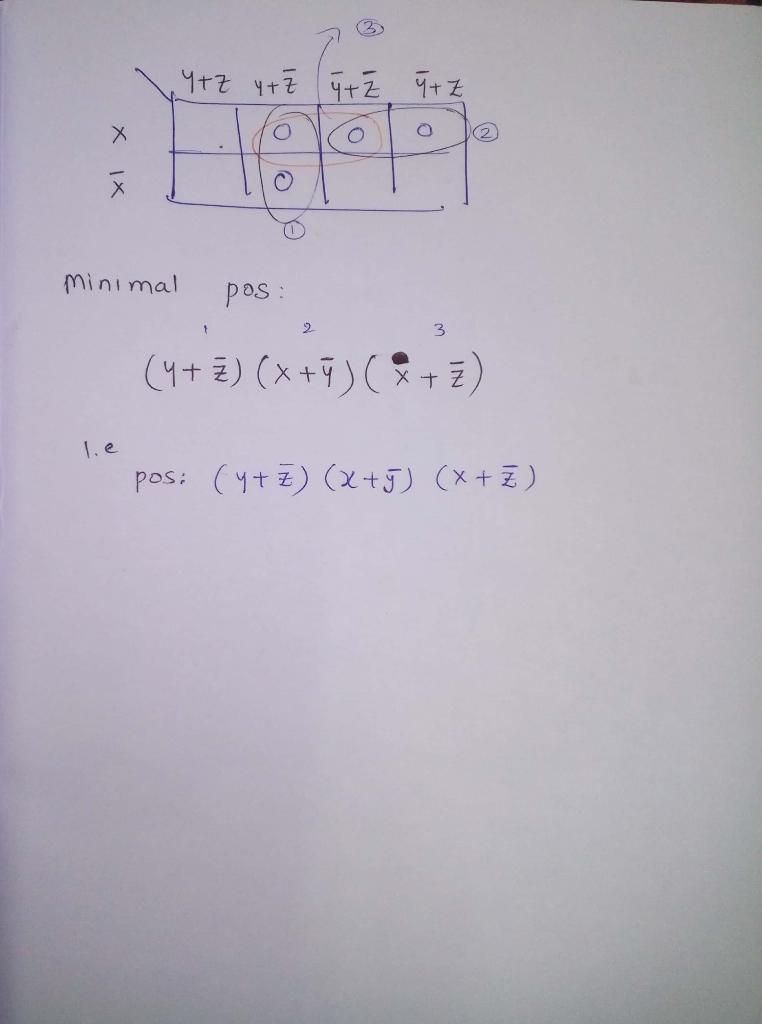 ③
y+z y+z̄ ȳ+z̄ ȳ+z
x 0 0 0 ②
x̄ 0
①
minimal pos:
1 2 3
(y+z̄) (x+ȳ) (x+z̄)
I.e
pos: (y+z̄) (x+ȳ) (x+z̄)